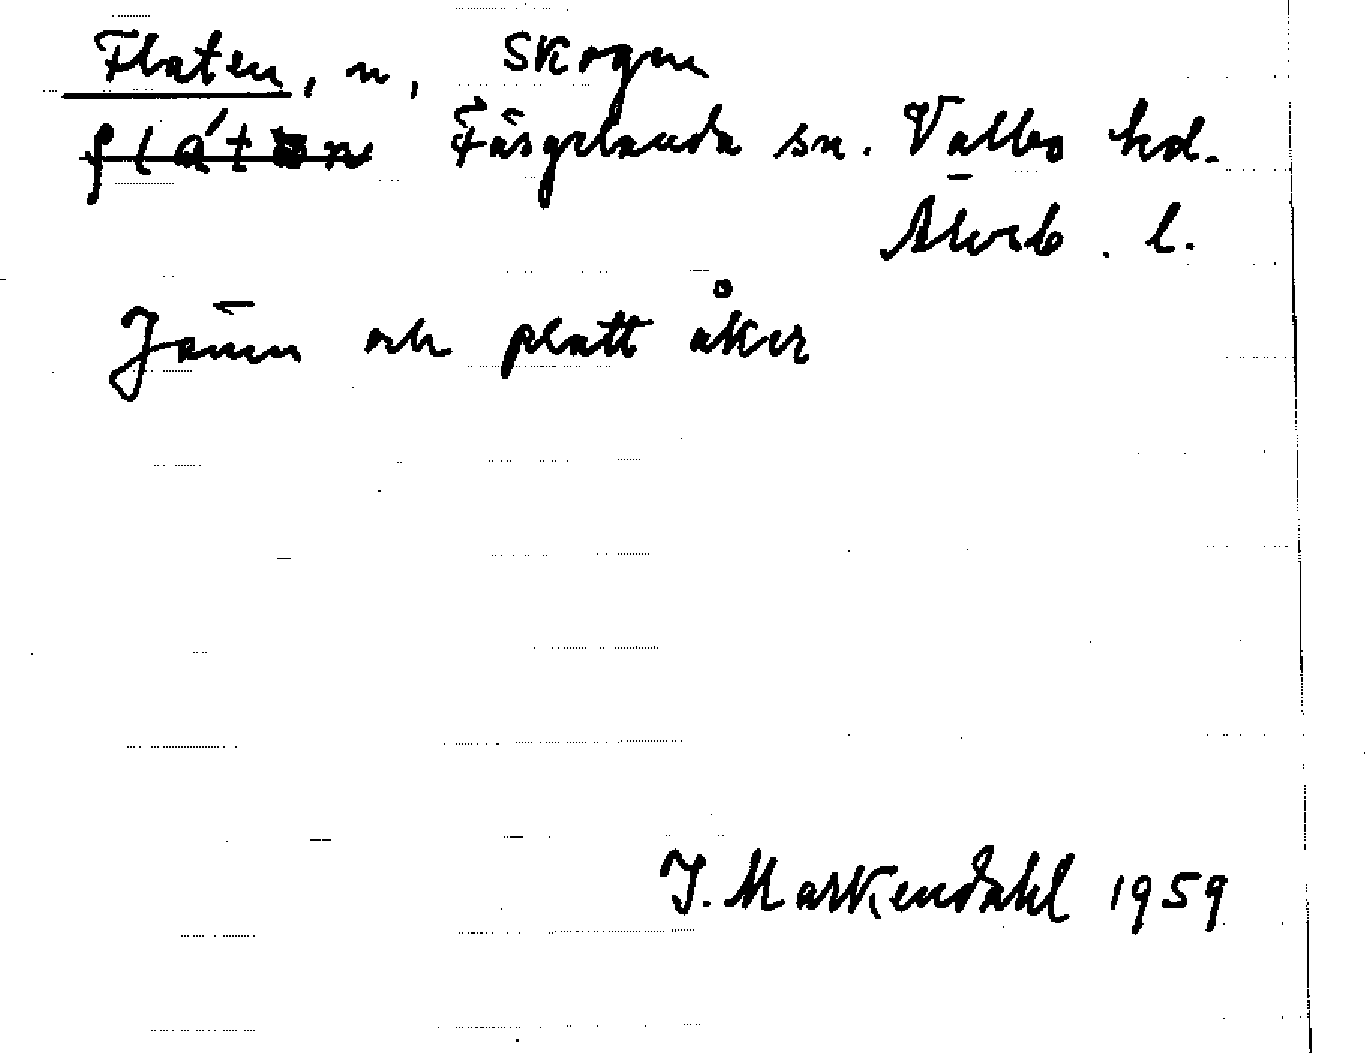 Flaten, n, Skogen
flátən Färgelanda sn. Valbo hd.
Älvsb. l.
Jämn och platt åker
J. Markendahl 1959